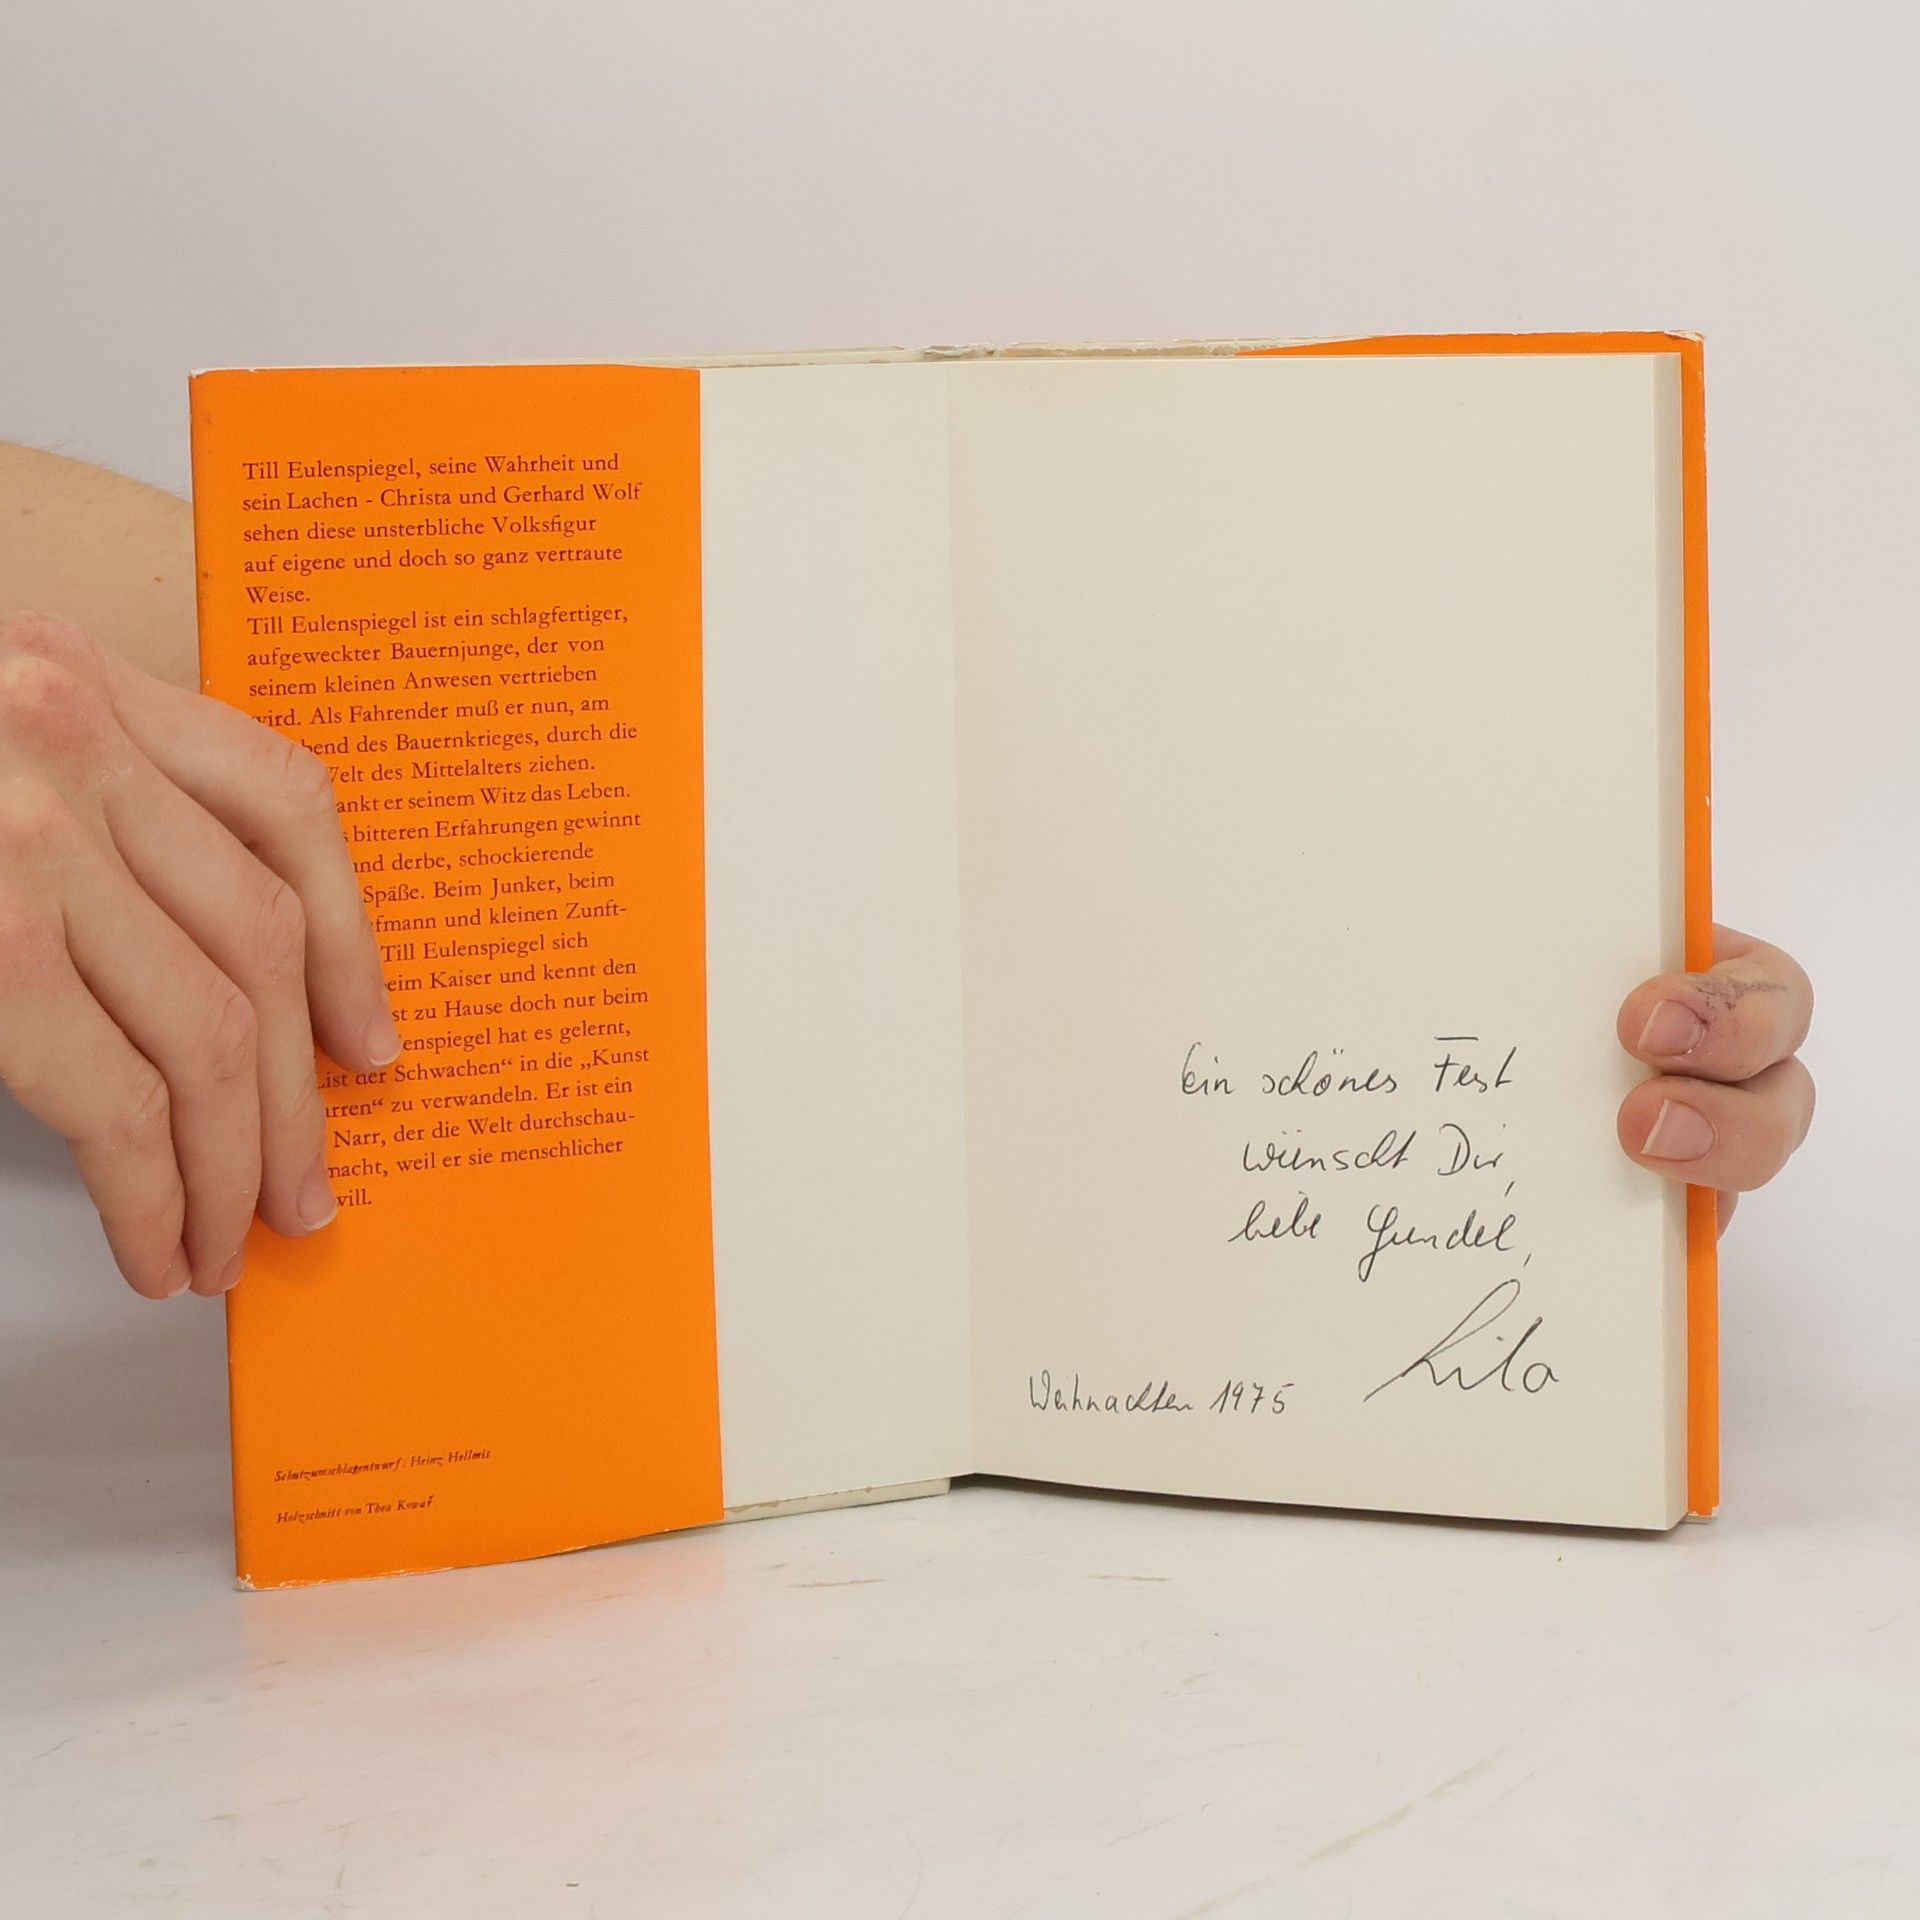 Till Eulenspiegel, seine Wahrheit und
sein Lachen - Christa und Gerhard Wolf
sehen diese unsterbliche Volksfigur
auf eigene und doch so ganz vertraute
Weise.
Till Eulenspiegel ist ein schlagfertiger,
aufgeweckter Bauernjunge, der von
seinem kleinen Anwesen vertrieben
wird. Als Fahrender muß er nun, am
bend des Bauernkrieges, durch die
Welt des Mittelalters ziehen.
ankt er seinem Witz das Leben.
s bitteren Erfahrungen gewinnt
und derbe, schockierende
Späße. Beim Junker, beim
fmann und kleinen Zunft-
Till Eulenspiegel sich
eim Kaiser und kennt den
st zu Hause doch nur beim
enspiegel hat es gelernt,
List der Schwachen“ in die „Kunst
arren“ zu verwandeln. Er ist ein
Narr, der die Welt durchschau-
macht, weil er sie menschlicher
will.
Schutzumschlagentwurf: Heinz Hellmis
Holzschnitt von Thea Kowař
Ein schönes Fest
wünscht Dir,
liebe Gundel,
Weihnachten 1975